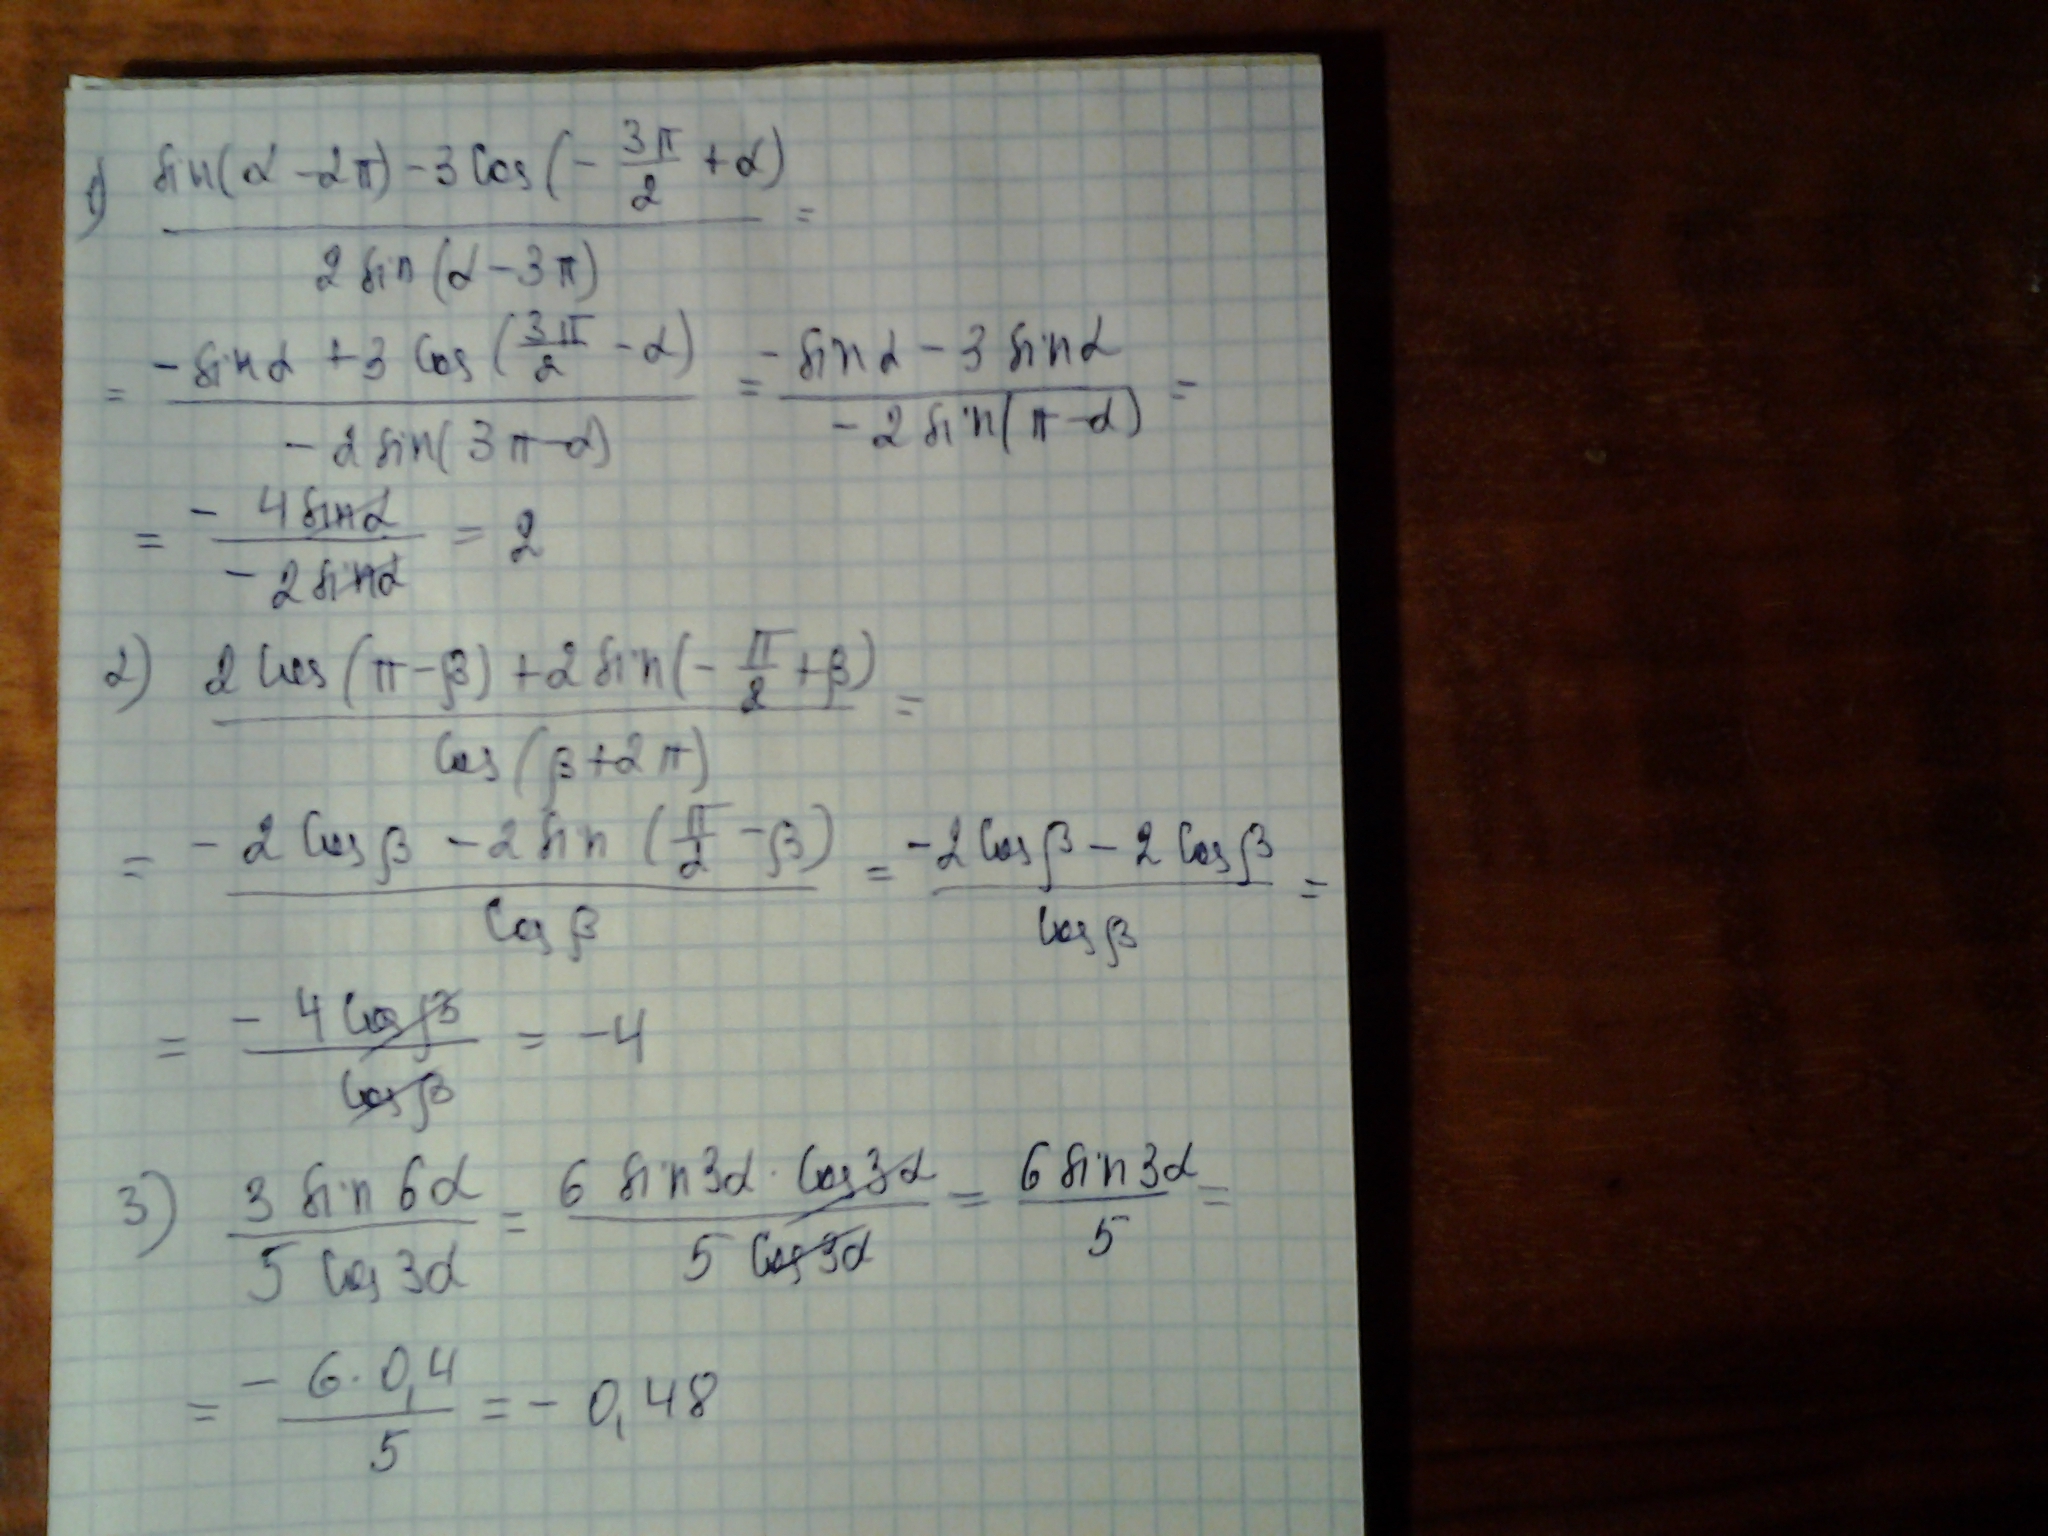 1) (sin(α − 2π) − 3 cos(− 3π/2 + α)) / (2 sin(α − 3π)) =
= (− sin α + 3 cos(3π/2 − α)) / (− 2 sin(3π − α)) = (− sin α − 3 sin α) / (− 2 sin(π − α)) =
= (− 4 sin α) / (− 2 sin α) = 2
2) (2 cos(π − β) + 2 sin(− π/2 + β)) / (cos(β + 2π)) =
= (− 2 cos β − 2 sin(π/2 − β)) / (cos β) = (− 2 cos β − 2 cos β) / (cos β) =
= (− 4 cos β) / (cos β) = − 4
3) (3 sin 6α) / (5 cos 3α) = (6 sin 3α · cos 3α) / (5 cos 3α) = (6 sin 3α) / 5 =
= (− 6 · 0,4) / 5 = − 0,48